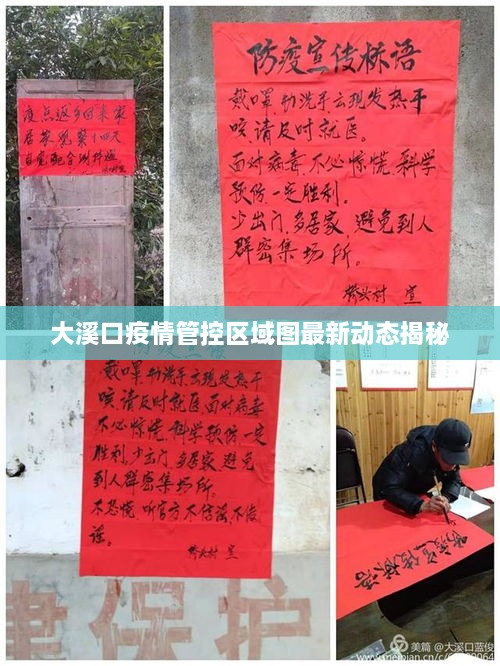 疫点返乡回来家
居家观察十四天
自觉配合测体温
防疫宣传标语
戴罩勤洗手去现发热干
咳请及时就医。
面对病毒不必惊慌,科学
预伤一定胜利。
少出门,多居家,避免到人
群密集场所。
桥头村 宣
大溪口疫情管控区域图最新动态揭秘
戴罩勤洗手去现发热干
咳,请及时就医面对病毒
不必惊慌,科学预伤一定
胜利,少出门,多居家,避免
到人群密集场所。
不恐慌 听官方不信谣,不传
谣。
桥头村 宣
保护
防疫宣传标语
美篇 @大溪口蓝俊